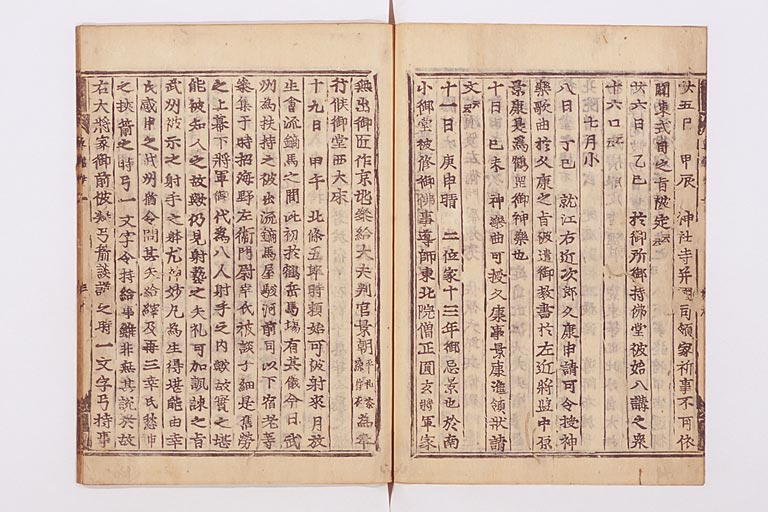 廿五日 甲辰 神社寺并國司領家訴事不可依
關東式目之旨限定云云
廿六日 乙巳 於御所御持佛堂被始八講之衆
廿六口云云
七月小
八日 丁巳 就江右近次郎久康申請可令授神
樂歌曲於久康之旨被遣御教書於左近將監中原
景康是爲鶴岡御神樂也
十日 己未 神樂曲可授久康事景康進領狀請
文云云
十一日 庚申晴 二位家十三年御忌景也於南
小御堂被修御佛事導師東北院僧正圓玄將軍家
無出御匠作京兆參給大夫判官景朝 爲奉
行候御堂西大床
十九日 甲午 北條五郎時頼始可被射來月放
生會流鏑馬之間此初於鶴岳馬場有其儀今日武
州爲扶持之被出流鏑馬屋駿河前司以下宿老等
參集于時招海野左衞門尉幸氏被談子細是舊勞
之上幕下將軍御代爲八人射手之内歟故實之堪
能被知人之故歟仍見射藝之失礼可加諷諫之旨
武州被示之射手之躰尤神妙凡爲生得堪能由幸
氏感申之武州猶令問其失給縡及再三幸氏愁申
之挾箭之時弓一文字令持給事雖非無其説於故
右大將家御前被凝弓箭談議之時一文字弓持事